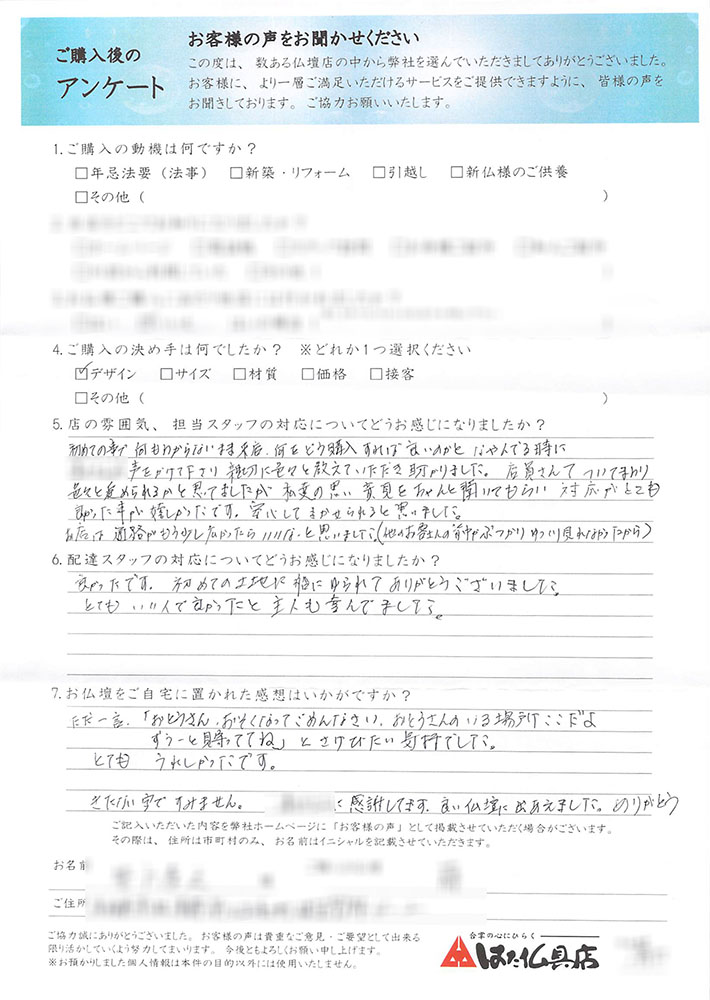 ご購入後の
アンケート
お客様の声をお聞かせください
この度は、数ある仏壇店の中から弊社を選んでいただきましてありがとうございました。
お客様に、より一層ご満足いただけるサービスをご提供できますように、皆様の声を
お聞きしております。ご協力お願いいたします。
1.ご購入の動機は何ですか?
□年忌法要(法事) □新築・リフォーム □引越し □新仏様のご供養
□その他( )
4.ご購入の決め手は何でしたか? ※どれか1つ選択ください
☑デザイン □サイズ □材質 □価格 □接客
□その他( )
5.店の雰囲気、担当スタッフの対応についてどうお感じになりましたか?
初めての事で何もわからないまま来店、何をどう購入すれば良いのかと なやんでる時に
声をかけて下さり 親切に色々と教えていただき助かりました。店員さんて ついてまわり
色々と進められるかと思ってましたが 私達の思い 意見をちゃんと聞いてもらい 対応がとても
良かった事が嬉しかったです。安心してまかせられると思いました。
お店は通路がもう少し広かったらいいな、と思いました(他のお客さんの背中がぶつかりゆっくり見れなかったから)
6.配達スタッフの対応についてどうお感じになりましたか?
良かったです。初めての土地に 船にゆられてありがとうございました。
とても いい人で良かったと 主人も喜んでました。
7.お仏壇をご自宅に置かれた感想はいかがですか?
ただ一言、「おとうさん、おそくなってごめんなさい、おとうさんのいる場所ここだよ
ずうーと見守っててね」と さけびたい気持でした。
とても うれしかったです。
きたない字ですみません。 に感謝してます、良い仏壇に出あえました。ありがとう
ご記入いただいた内容を弊社ホームページに「お客様の声」として掲載させていただく場合がございます。
その際は、住所は市町村のみ、お名前はイニシャルを記載させていただきます。
お名前
ご住所
ご協力誠にありがとうございました。お客様の声は貴重なご意見・ご要望として出来る
限り活かしていくよう努力してまいります。今後ともよろしくお願い申し上げます。
※お預かりしました個人情報は本件の目的以外には使用いたしません。
合掌の心にひらく
はた仏具店